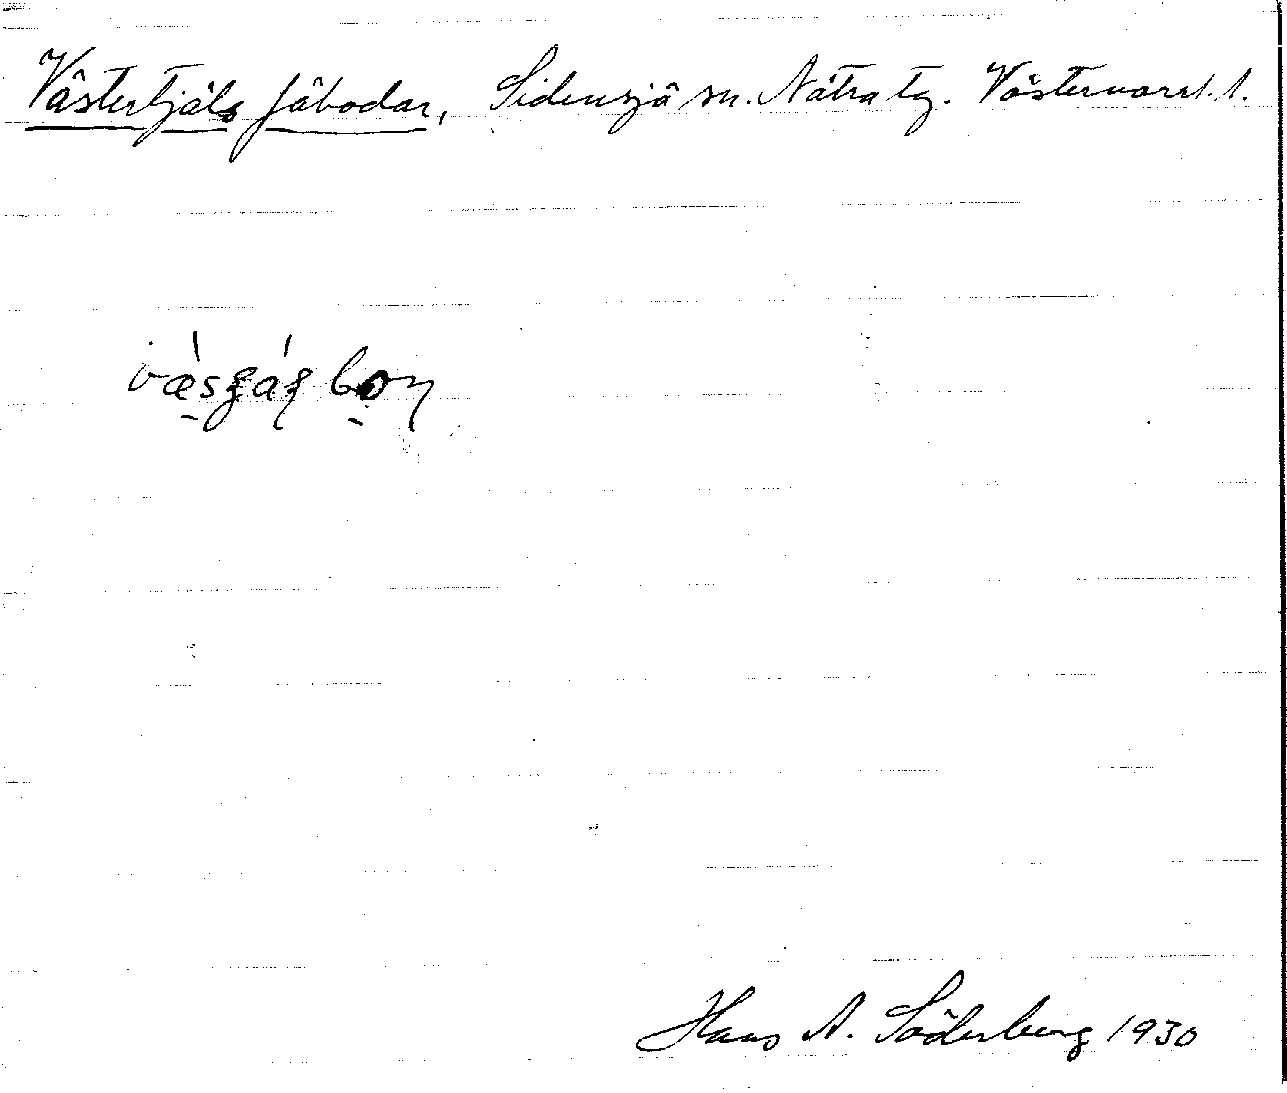 Västertjäls fäbodar, Sidensjö sn. Nätra tg. Västernorrl. l.
Hans A. Söderberg 1930